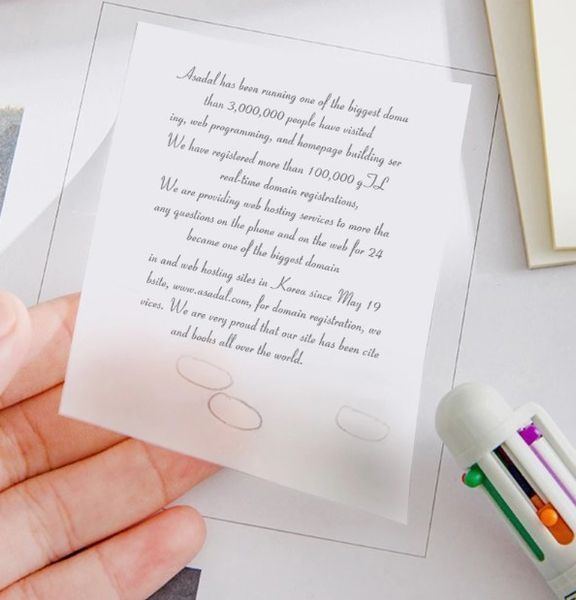 Asadal has been running one of the biggest doma
than 3,000,000 people have visited
ing, web programming, and homepage building ser
We have registered more than 100,000 gTL
real-time domain registrations,
We are providing web hosting services to more tha
any questions on the phone and on the web for 24
became one of the biggest domain
in and web hosting sites in Korea since May 19
bsite, www.asadal.com, for domain registration, we
vices. We are very proud that our site has been cite
and books all over the world.